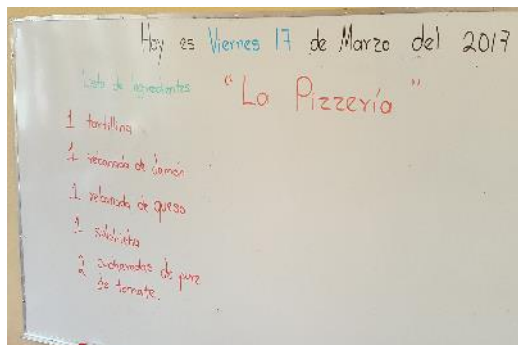 Hoy es Viernes 17 de Marzo del 2017
"La Pizzería"
Lista de Ingredientes
1 tortillina
1 rebanada de Jamón
1 rebanada de queso
1 salchicha
2 cucharadas de pure
de tomate.